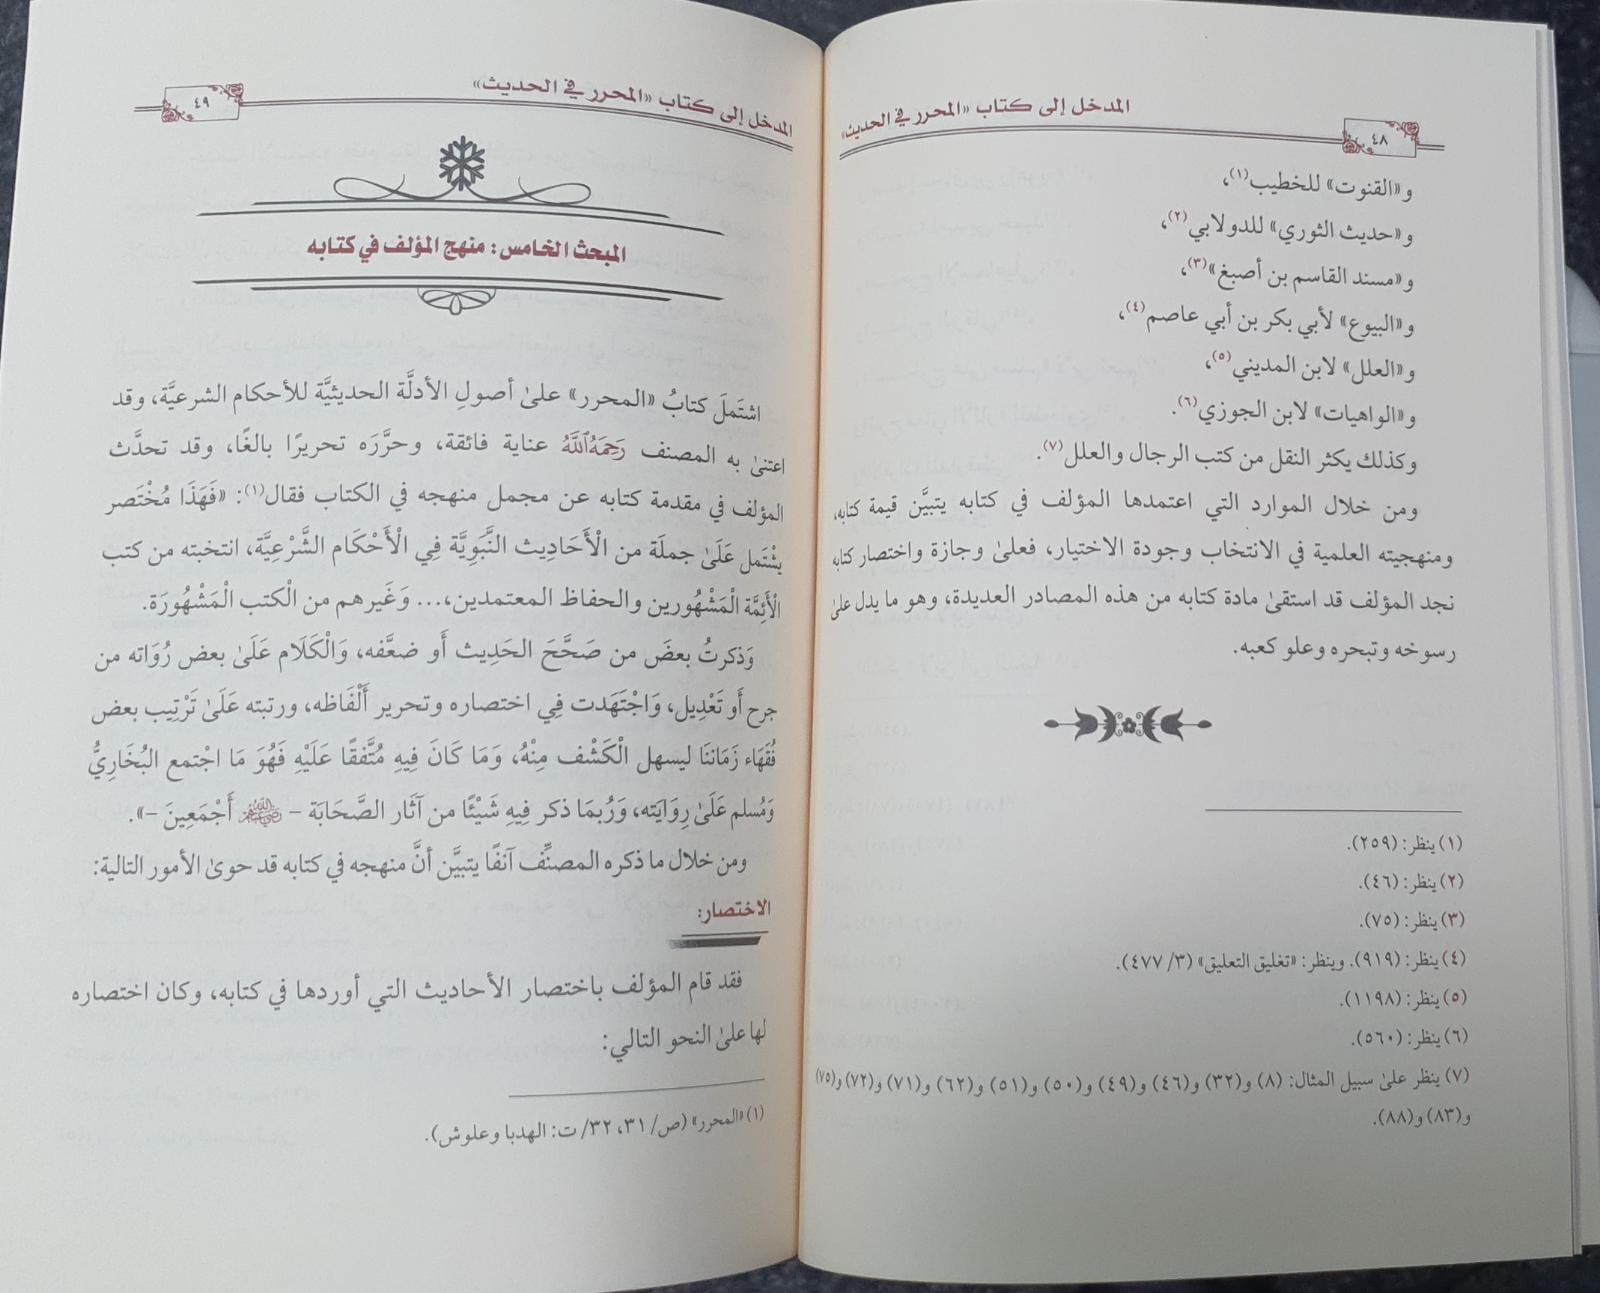 المدخل إلى كتاب «المحرر في الحديث»
٤٨
و«القنوت» للخطيب(١)،
و«حديث الثوري» للدولابي(٢)،
و«مسند القاسم بن أصبغ»(٣)،
و«البيوع» لأبي بكر بن أبي عاصم(٤)،
و«العلل» لابن المديني(٥)،
و«الواهيات» لابن الجوزي(٦).
وكذلك يكثر النقل من كتب الرجال والعلل(٧).
ومن خلال الموارد التي اعتمدها المؤلف في كتابه يتبيَّن قيمة كتابه،
ومنهجيته العلمية في الانتخاب وجودة الاختيار، فعلىٰ وجازة واختصار كتابه
نجد المؤلف قد استقىٰ مادة كتابه من هذه المصادر العديدة، وهو ما يدل علىٰ
رسوخه وتبحره وعلو كعبه.
(١) ينظر: (٢٥٩).
(٢) ينظر: (٤٦).
(٣) ينظر: (٧٥).
(٤) ينظر: (٩١٩). وينظر: «تغليق التعليق» (٣/ ٤٧٧).
(٥) ينظر: (١١٩٨).
(٦) ينظر: (٥٦٠).
(٧) ينظر علىٰ سبيل المثال: (٨) و(٣٢) و(٤٦) و(٤٩) و(٥٠) و(٥١) و(٦٢) و(٧١) و(٧٢) و(٧٥)
و(٨٣) و(٨٨).
المدخل إلى كتاب «المحرر في الحديث»
٤٩
المبحث الخامس: منهج المؤلف في كتابه
اشتَملَ كتابُ «المحرر» علىٰ أصولِ الأدلَّة الحديثيَّة للأحكام الشرعيَّة، وقد
اعتنىٰ به المصنف رَحِمَهُ ٱللَّهُ عناية فائقة، وحرَّرَه تحريرًا بالغًا، وقد تحدَّث
المؤلف في مقدمة كتابه عن مجمل منهجه في الكتاب فقال(١): «فَهَذَا مُخْتَصر
يشْتَمل عَلَىٰ جملَة من الْأَحَادِيث النَّبَوِيَّة فِي الْأَحْكَام الشَّرْعِيَّة، انتخبته من كتب
الْأَئِمَّة الْمَشْهُورين والحفاظ المعتمدين،... وَغَيرهم من الكتب الْمَشْهُورَة.
وَذكرتُ بعضَ من صَحَّحَ الحَدِيث أَو ضعَّفه، وَالْكَلَام عَلَىٰ بعض رُوَاته من
جرح أَو تَعْدِيل، وَاجْتَهَدت فِي اختصاره وتحرير أَلْفَاظه، ورتبته عَلَىٰ تَرْتِيب بعض
فُقَهَاء زَمَاننَا ليسهل الْكَشْف مِنْهُ، وَمَا كَانَ فِيهِ مُتَّفقًا عَلَيْهِ فَهُوَ مَا اجْتمع البُخَارِيُّ
وَمُسلم عَلَىٰ رِوَايَته، وَرُبمَا ذكر فِيهِ شَيْئًا من آثَار الصَّحَابَة – رضي الله عنهم أَجْمَعِينَ –».
ومن خلال ما ذكره المصنِّف آنفًا يتبيَّن أنَّ منهجه في كتابه قد حوىٰ الأمور التالية:
الاختصار:
فقد قام المؤلف باختصار الأحاديث التي أوردها في كتابه، وكان اختصاره
لها علىٰ النحو التالي:
(١) «المحرر» (ص/ ٣١، ٣٢/ ت: الهدبا وعلوش).